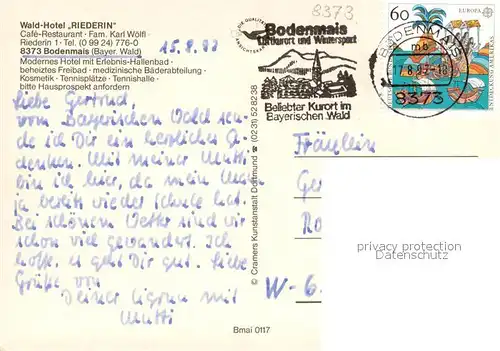 Wald-Hotel „RIEDERIN"
Café-Restaurant · Fam. Karl Wölfl
Riederin 1 · Tel. (0 99 24) 776-0
8373 Bodenmais (Bayer. Wald)
15.8.92
Modernes Hotel mit Erlebnis-Hallenbad -
beheiztes Freibad - medizinische Bäderabteilung -
Kosmetik - Tennisplätze - Tennishalle -
bitte Hausprospekt anfordern
8373
Bodenmais
Luftkurort und Wintersport
Beliebter Kurort im
Bayerischen Wald
BODENMAIS
mb
8373
60
EUROPA
Liebe Gertrud,
vom Bayerischen Wald sen-
de ich Dir ein herzliches Ge-
denken. Mit meiner Mutti
bin ich hier, da mein Mann
ja bereits wieder Schule hat.
Bei schönem Wetter sind wir
schon viel gewandert. Ich
hoffe, es geht Dir gut. Liebe
Grüße von
Deiner Sigrun mit
Mutti
© Cramers Kunstanstalt Dortmund (0231) 52 82 38
Fräulein
Ge
Ro
W-6
privacy protection
DATENSCHUTZ
Bmai 0117